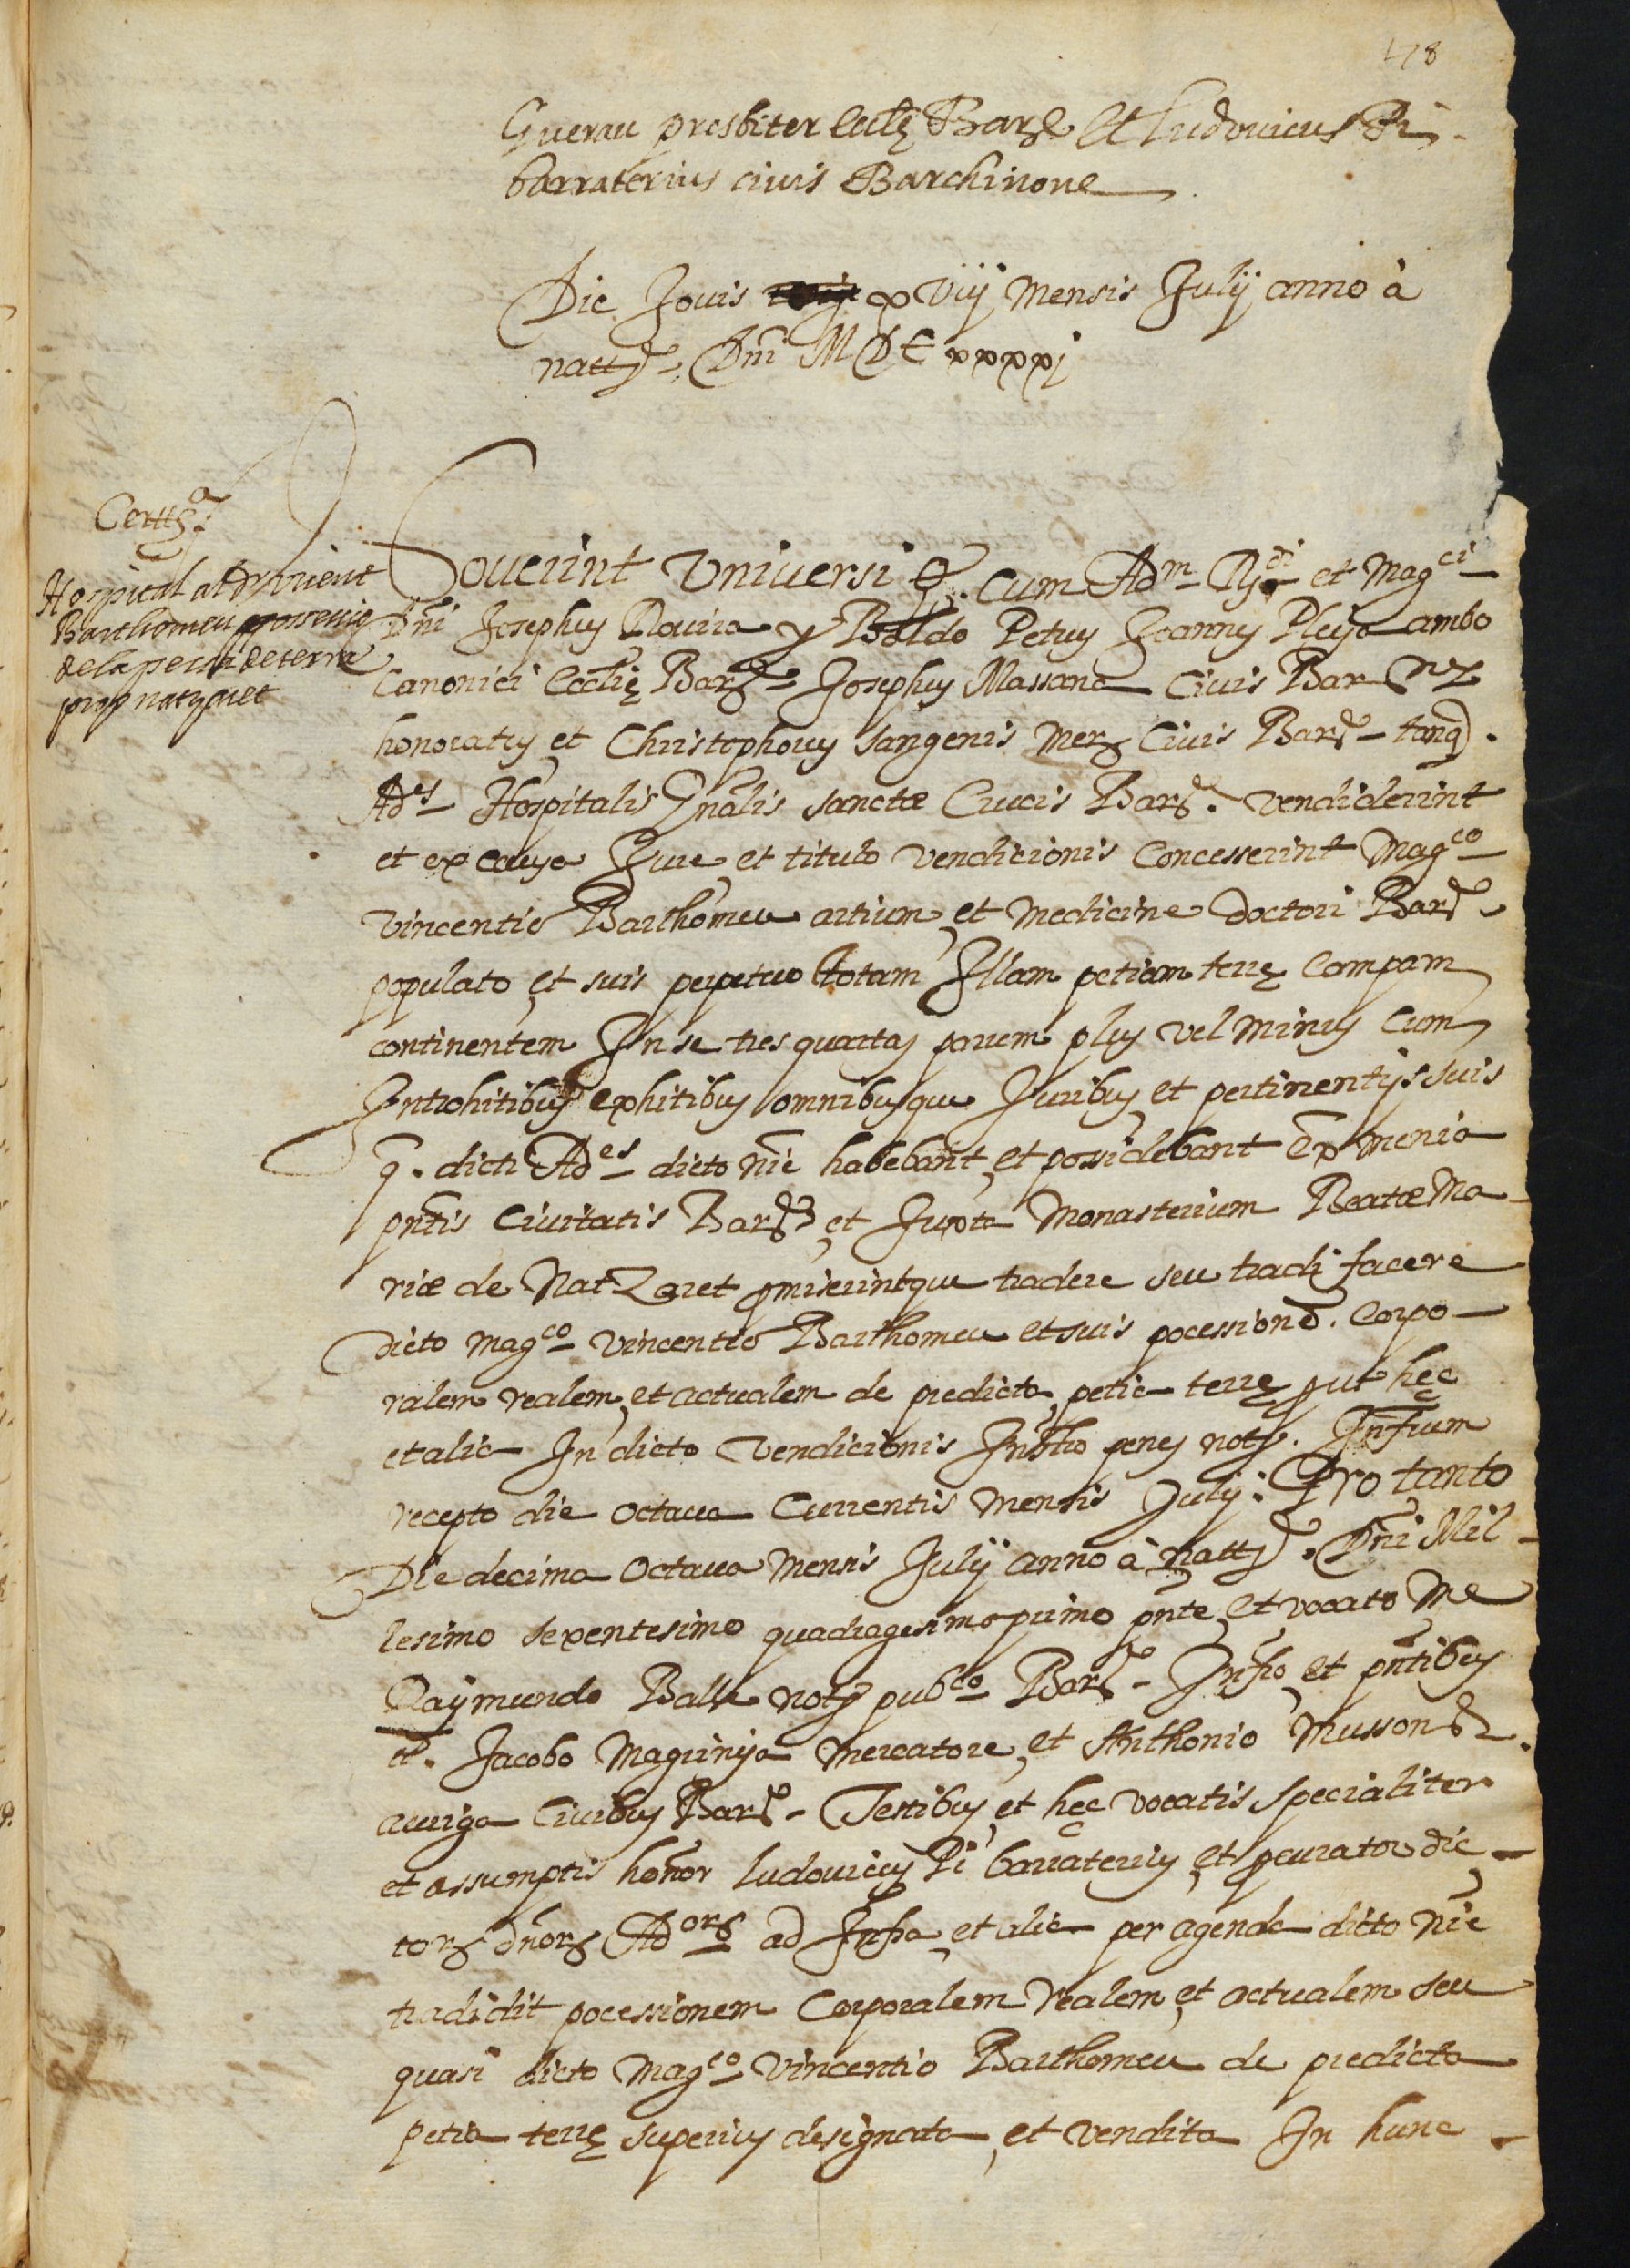 178
Guerau presbiter Ecclę Barᵉ et Ludovicus Pi
barraterius civis Barchinone
Die Jovis xviij mensis Julij anno à
nattᵉ. Dñi MDCxxxxj
Certtᵃ.
Hospital al Dr. Vicent
Barthomeu possessio
de la pessa de terra
prop natzaret
Noverint Universi &. Cum Adᵐ Rᵈⁱ et Magᶜⁱ
Dñi Josephus Rovira y Boldo Petrus Joannes Pleya ambo
Canonici Ecclię Barᵉ Josephus Massana Civis Bar nᵉ
honoratus, et Christophorus Sangenis Merʳ Civis Barᵉ tanq̃.
Adᵉˢ Hospitalis Gñalis Sanctæ Crucis Barᵉ. vendiderint
et ex causa Jure et titulo vendicionis Concesserint Magᶜᵒ
Vincentio Barthomeu artium, et Medicine Doctori Barᵉ
populato, et suis perpetuo totam Illam petiam terrę Campam
continentem In se tres quartas parum plus vel minus Cum
Introhitibus exhitibus omnibusque Juribus, et pertinentijs suis
q̃. dicti Adᵉˢ dicto nõie habebant, et possidebant Ex^a menia
pñtis Civitatis Barᵉ, et Juxta Monasterium Beatæ Ma
riæ de NatZaret promiserintque tradere seu tradi facere
Dicto Magᶜᵒ Vincentio Barthomeu et suis pocession̄. Corpo
ralem realem, et actualem de predicta petia terrę prout hęc
et alia In dicto Vendicionis Instrᵒ penes notᵐ. Infrum
recepto die octava Currentis mensis Julij: Pro tanto
Die decima octava Mensis Julij anno à nattᵉ. Dñi Mil
lesimo sexentesimo quadragesimo primo pñte, et vocato Me
Raymundo Balle notᵒ pubᶜᵒ Barᵉ. Infrᵒ, et pñtibus
et. Jacobo Magrinya Mercatore, et Anthonio Musson
auriga Civibus Barᵉ. Testibus, et hęc vocatis specialiter
et assumptis honor Ludovicus Pi barraterius, et procurator dic
torᵐ dñorᵐ Adᵒʳᵐ ad Infra, et alia per agenda dicto nõie
tradidit pocessionem Corporalem realem, et actualem seu
quasi dicto Magᶜᵒ Vincentio Barthomeu de predicta
petia terrę superius designata, et vendita In hunc